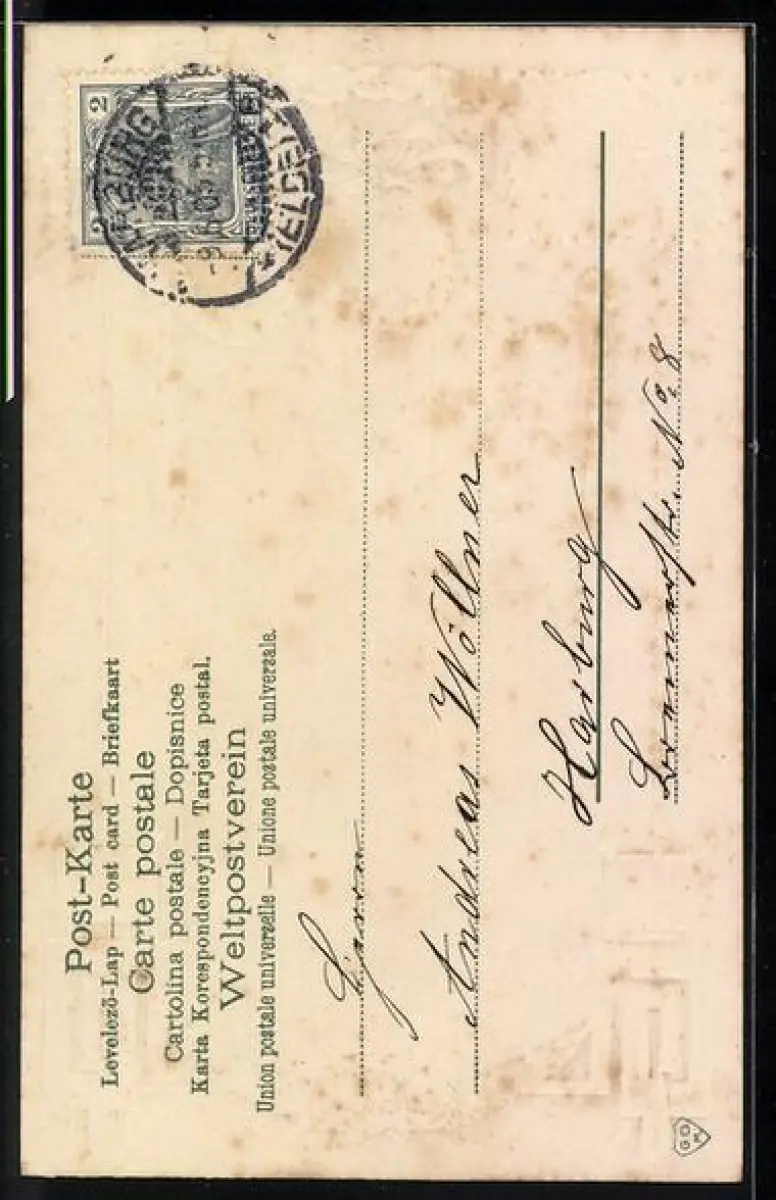 Post-Karte
Levelező-Lap — Post card — Briefkaart
Carte postale
Cartolina postale — Dopisnice
Karta Korespondencyjna Tarjeta postal.
Weltpostverein
Union postale universelle — Unione postale universale.
2 2
HARBURG
Herrn
Andreas Wöllner
Harburg
No 8
G O M